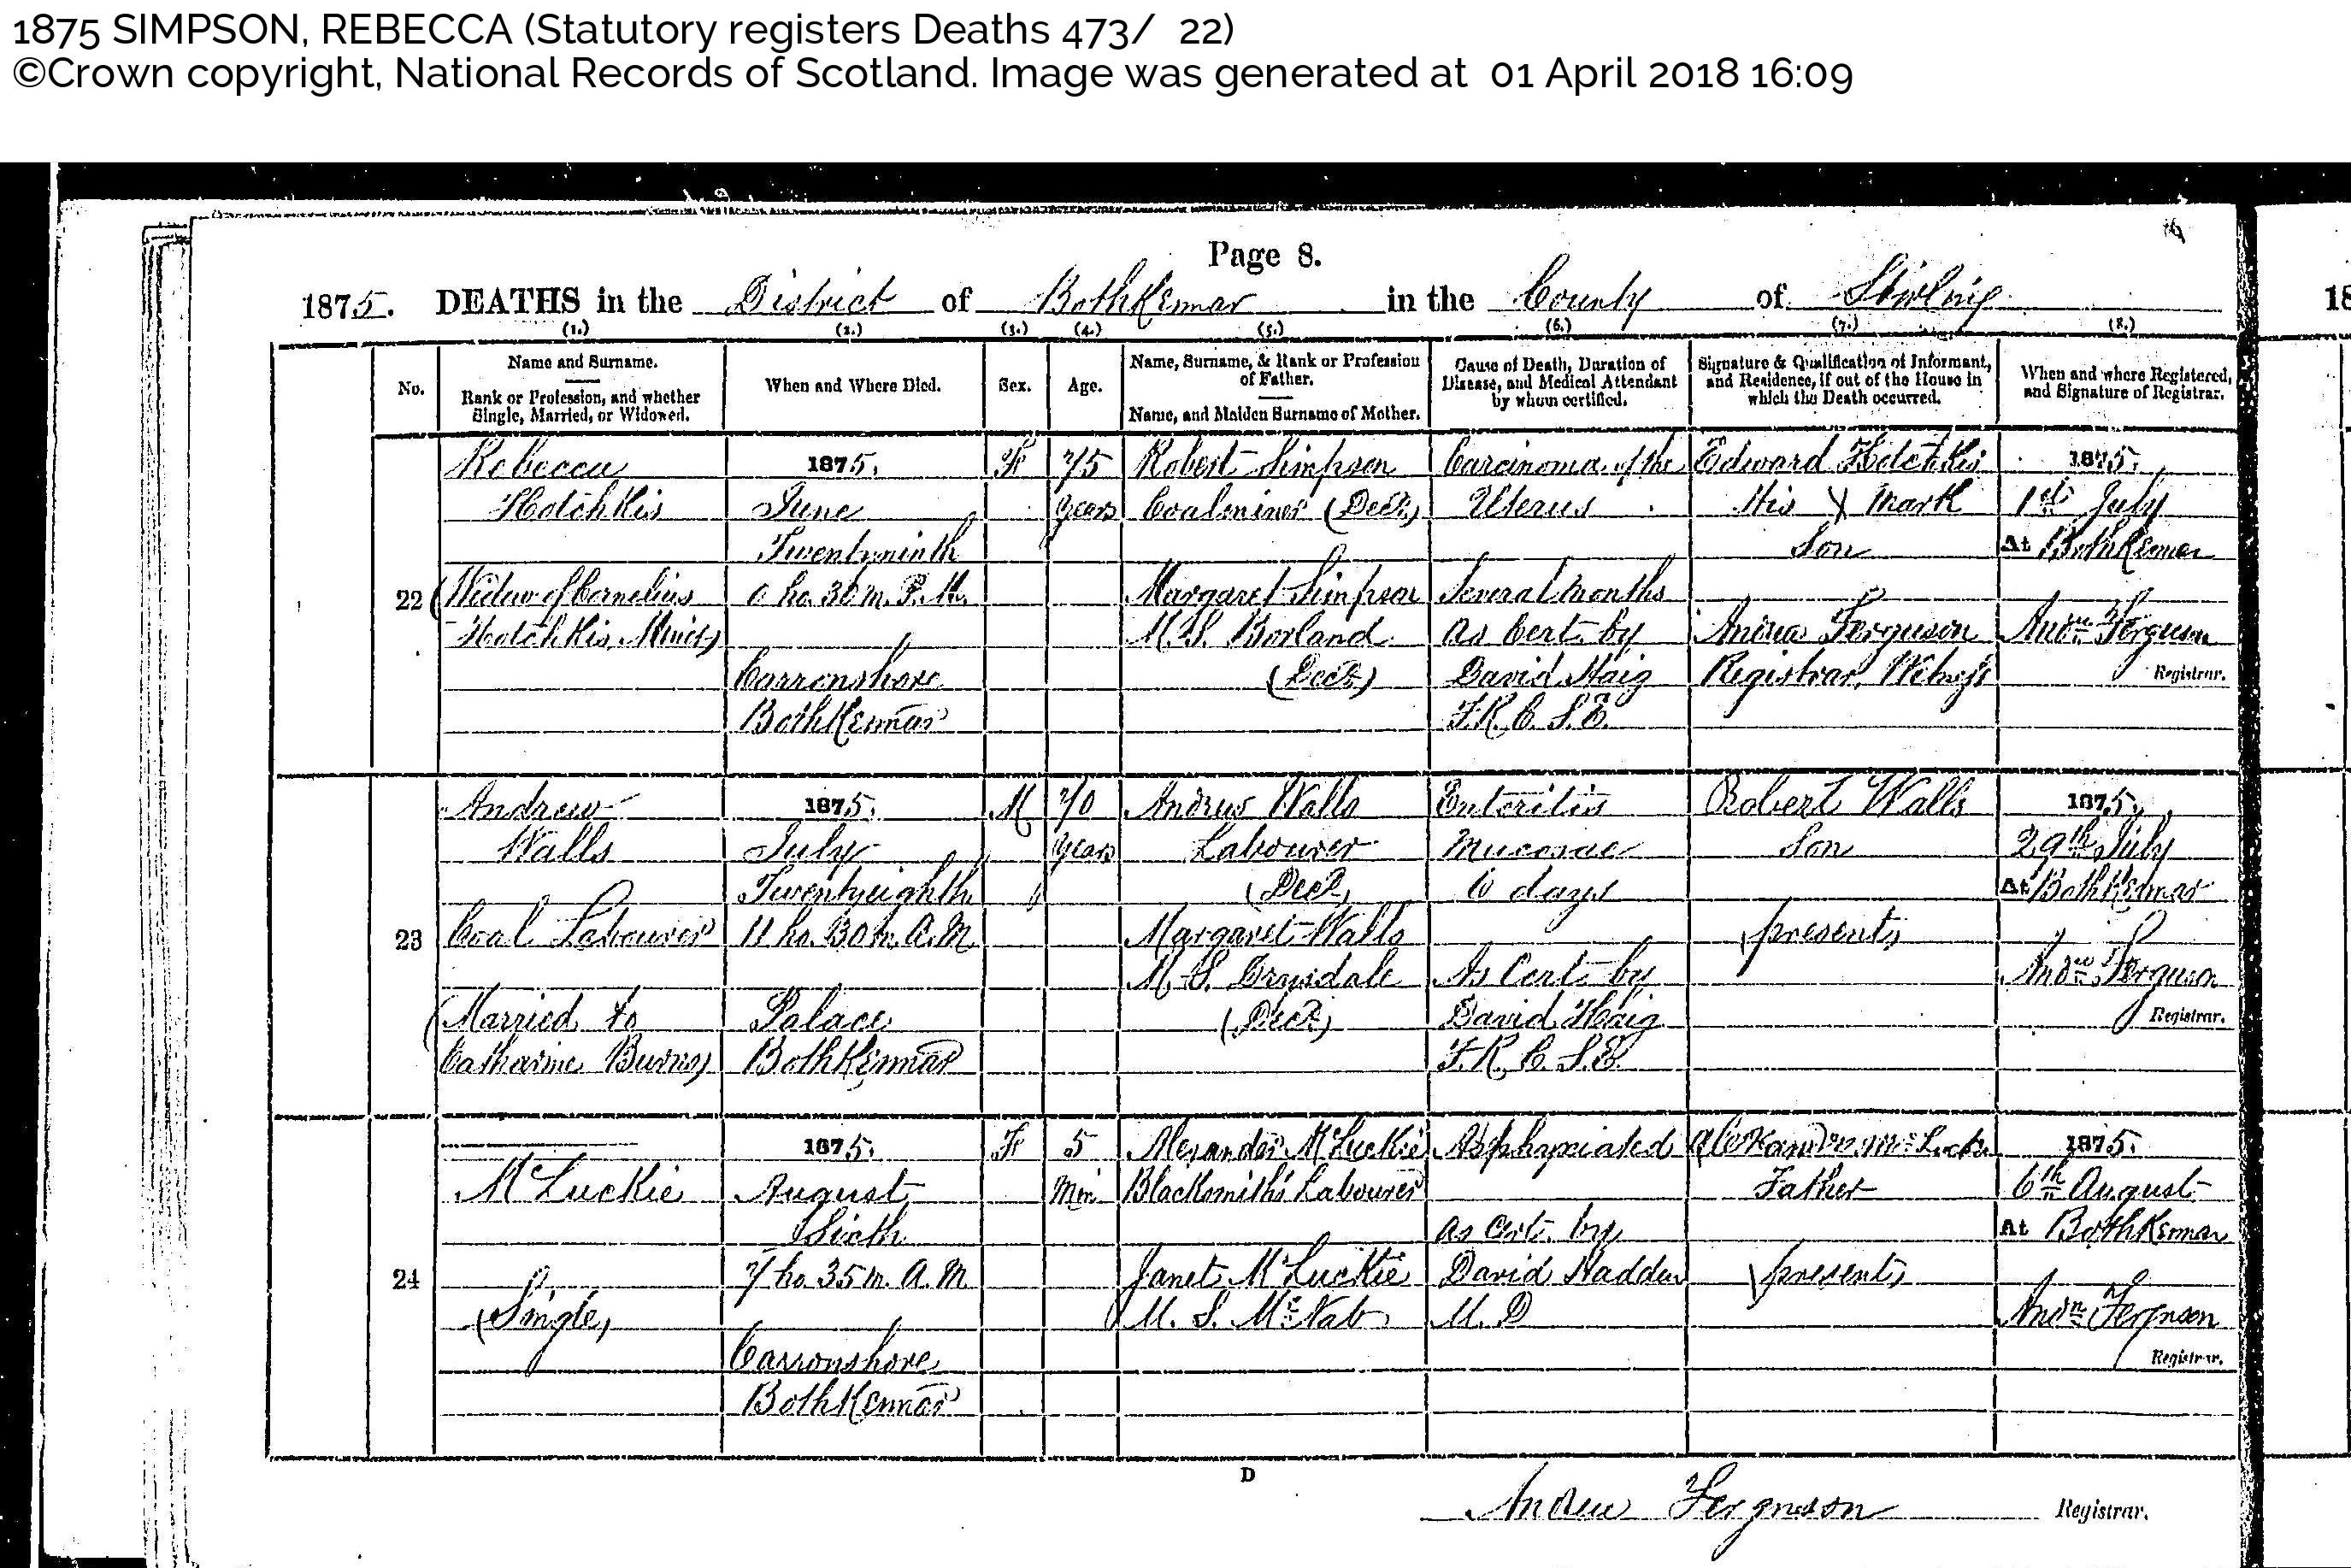 1875 SIMPSON, REBECCA (Statutory registers Deaths 473/ 22)
©Crown copyright, National Records of Scotland. Image was generated at 01 April 2018 16:09
Page 8.
1875. DEATHS in the District of Bothkennar in the County of Stirling
18
(1.) (2.) (3.) (4.) (5.) (6.) (7.) (8.)
No.
Name and Surname.
Rank or Profession, and whether
Single, Married, or Widowed.
When and Where Died.
Sex.
Age.
Name, Surname, & Rank or Profession
of Father.
Name, and Maiden Surname of Mother.
Cause of Death, Duration of
Disease, and Medical Attendant
by whom certified.
Signature & Qualification of Informant,
and Residence, if out of the House in
which the Death occurred.
When and where Registered,
and Signature of Registrar.
22
Rebecca
Hotchkis
(Widow of Cornelius
Hotchkis, Miner)
1875.
June
Twentyninth
0 ho. 30 m. P.M.
Carronshore
Bothkennar
F
75
years
Robert Simpson
Coalminer (Decd)
Margaret Simpson
M.S. Borland
(Decd)
Carcinoma of the
Uterus
Several months
As Cert. by
David Haig
F.R.C.S.E.
Edward Hotchkis
His X Mark
Son
Andrew Ferguson
Registrar, Witness
1875.
1st July
At Bothkennar
Andw Ferguson
Registrar.
23
Andrew
Walls
Coal Labourer
(Married to
Catharine Burns)
1875.
July
Twentyeighth
11 ho. 30 m. A.M.
Palace
Bothkennar
M
70
years
Andrew Walls
Labourer
(Decd)
Margaret Walls
M.S. Drysdale
(Decd)
Enteritis
Mucosae
6 days
As Cert. by
David Haig
F.R.C.S.E.
Robert Walls
Son
(present)
1875.
29th July
At Bothkennar
Andw Ferguson
Registrar.
24
McLuckie
(Single)
1875.
August
Sixth
7 ho. 35 m. A.M.
Carronshore
Bothkennar
F
5
Min
Alexander McLuckie
Blacksmith's Labourer
Janet McLuckie
M.S. McNab
Asphyxiated
As Cert. by
David Haddow
M.D
Alexander McLuckie
Father
(present)
1875.
6th August
At Bothkennar
Andw Ferguson
Registrar.
D
Andrew Ferguson Registrar.